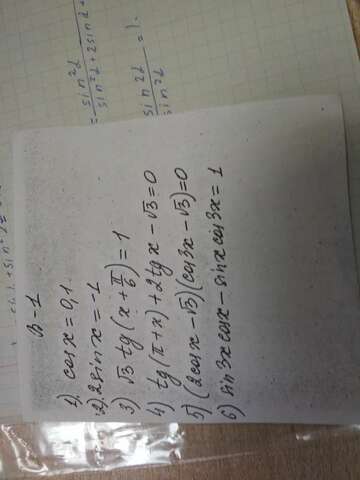 В-1
1). cosx = 0,1
2). 2sinx = -1
3) √3 tg(x + π/6) = 1
4) tg(π + x) + 2tgx - √3 = 0
5) (2cosx - √3)(cos3x - √3) = 0
6) sin3x cosx - sinx cos3x = 1
sin 2α
sin 2α = 1.